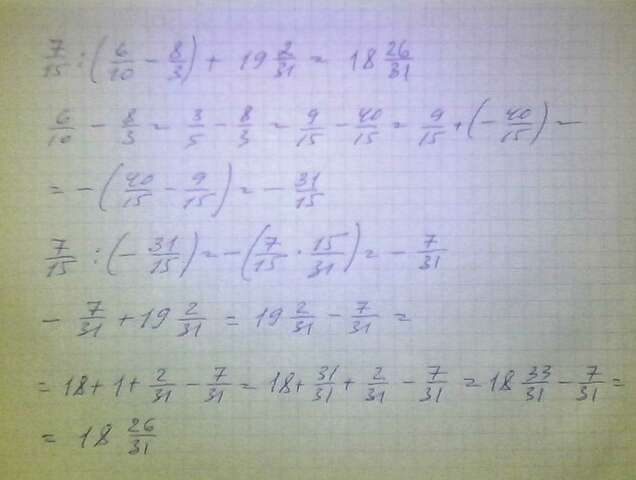 7/15 : (6/10 - 8/3) + 19 2/31 = 18 26/31
6/10 - 8/3 = 3/5 - 8/3 = 9/15 - 40/15 = 9/15 + (- 40/15) =
= - (40/15 - 9/15) = - 31/15
7/15 : (- 31/15) = - (7/15 · 15/31) = - 7/31
- 7/31 + 19 2/31 = 19 2/31 - 7/31 =
= 18 + 1 + 2/31 - 7/31 = 18 + 31/31 + 2/31 - 7/31 = 18 33/31 - 7/31 =
= 18 26/31